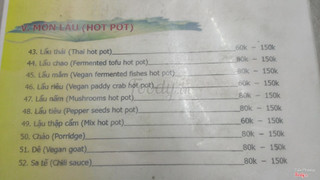 MÓN LẨU (HOT POT)
43. Lẩu thái (Thai hot pot) 60k – 150k
44. Lẩu chao (Fermented tofu hot pot) 80k – 150k
45. Lẩu mắm (Vegan fermented fishes hot pot) 80k – 150k
46. Lẩu riêu (Vegan paddy crab hot pot) 60k – 150k
47. Lẩu nấm (Mushrooms hot pot) 80k – 150k
48. Lẩu tiêu (Pepper seeds hot pot) 80k – 150k
49. Lẩu thập cẩm (Mix hot pot) 60k – 150k
50. Cháo (Porridge) 80k – 150k
51. Dê (Vegan goat) 80k – 150k
52. Sa tế (Chili sauce) 80k – 150k
Foody